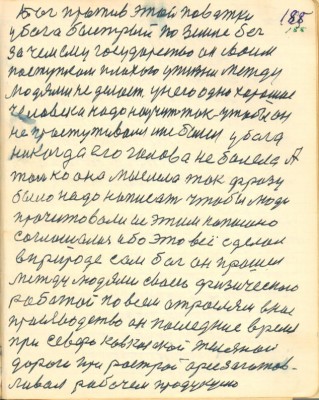 188
188
Бог против этой повадки
у бога быстрый по земле бег
зачем ему государство он своим
поступком плохого у жизни между
людями не делает у него одно хорошее
человека надо научить так чтобы он
не простуживался и не болел у бога
никогда его голова не болела А
только она мыслила так фразу
было надо написать чтобы люди
прочитовали и с этим написано
согласилися ибо это всё сделал
в природе сам бог он прошел
между людями своею физическою
работой по всем отраслям в кое
производство он последнее время
при Северо Кавказской железной
дороги при рострой
ливал рабочем продукцию